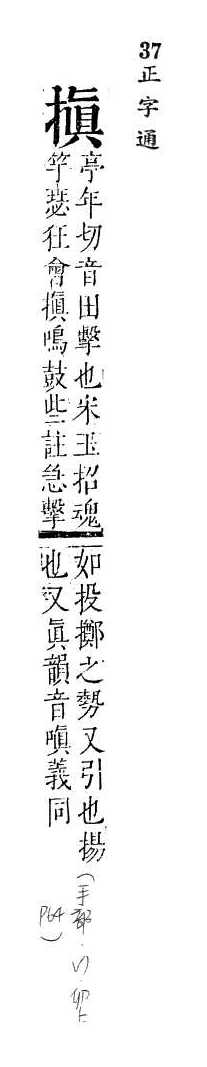 37
正字通
搷
亭年切音田擊也宋玉招魂
竽瑟狂會搷鳴鼓些註急擊
如投擲之勢又引也揚
也又眞韻音嗔義同
(手部
P64)